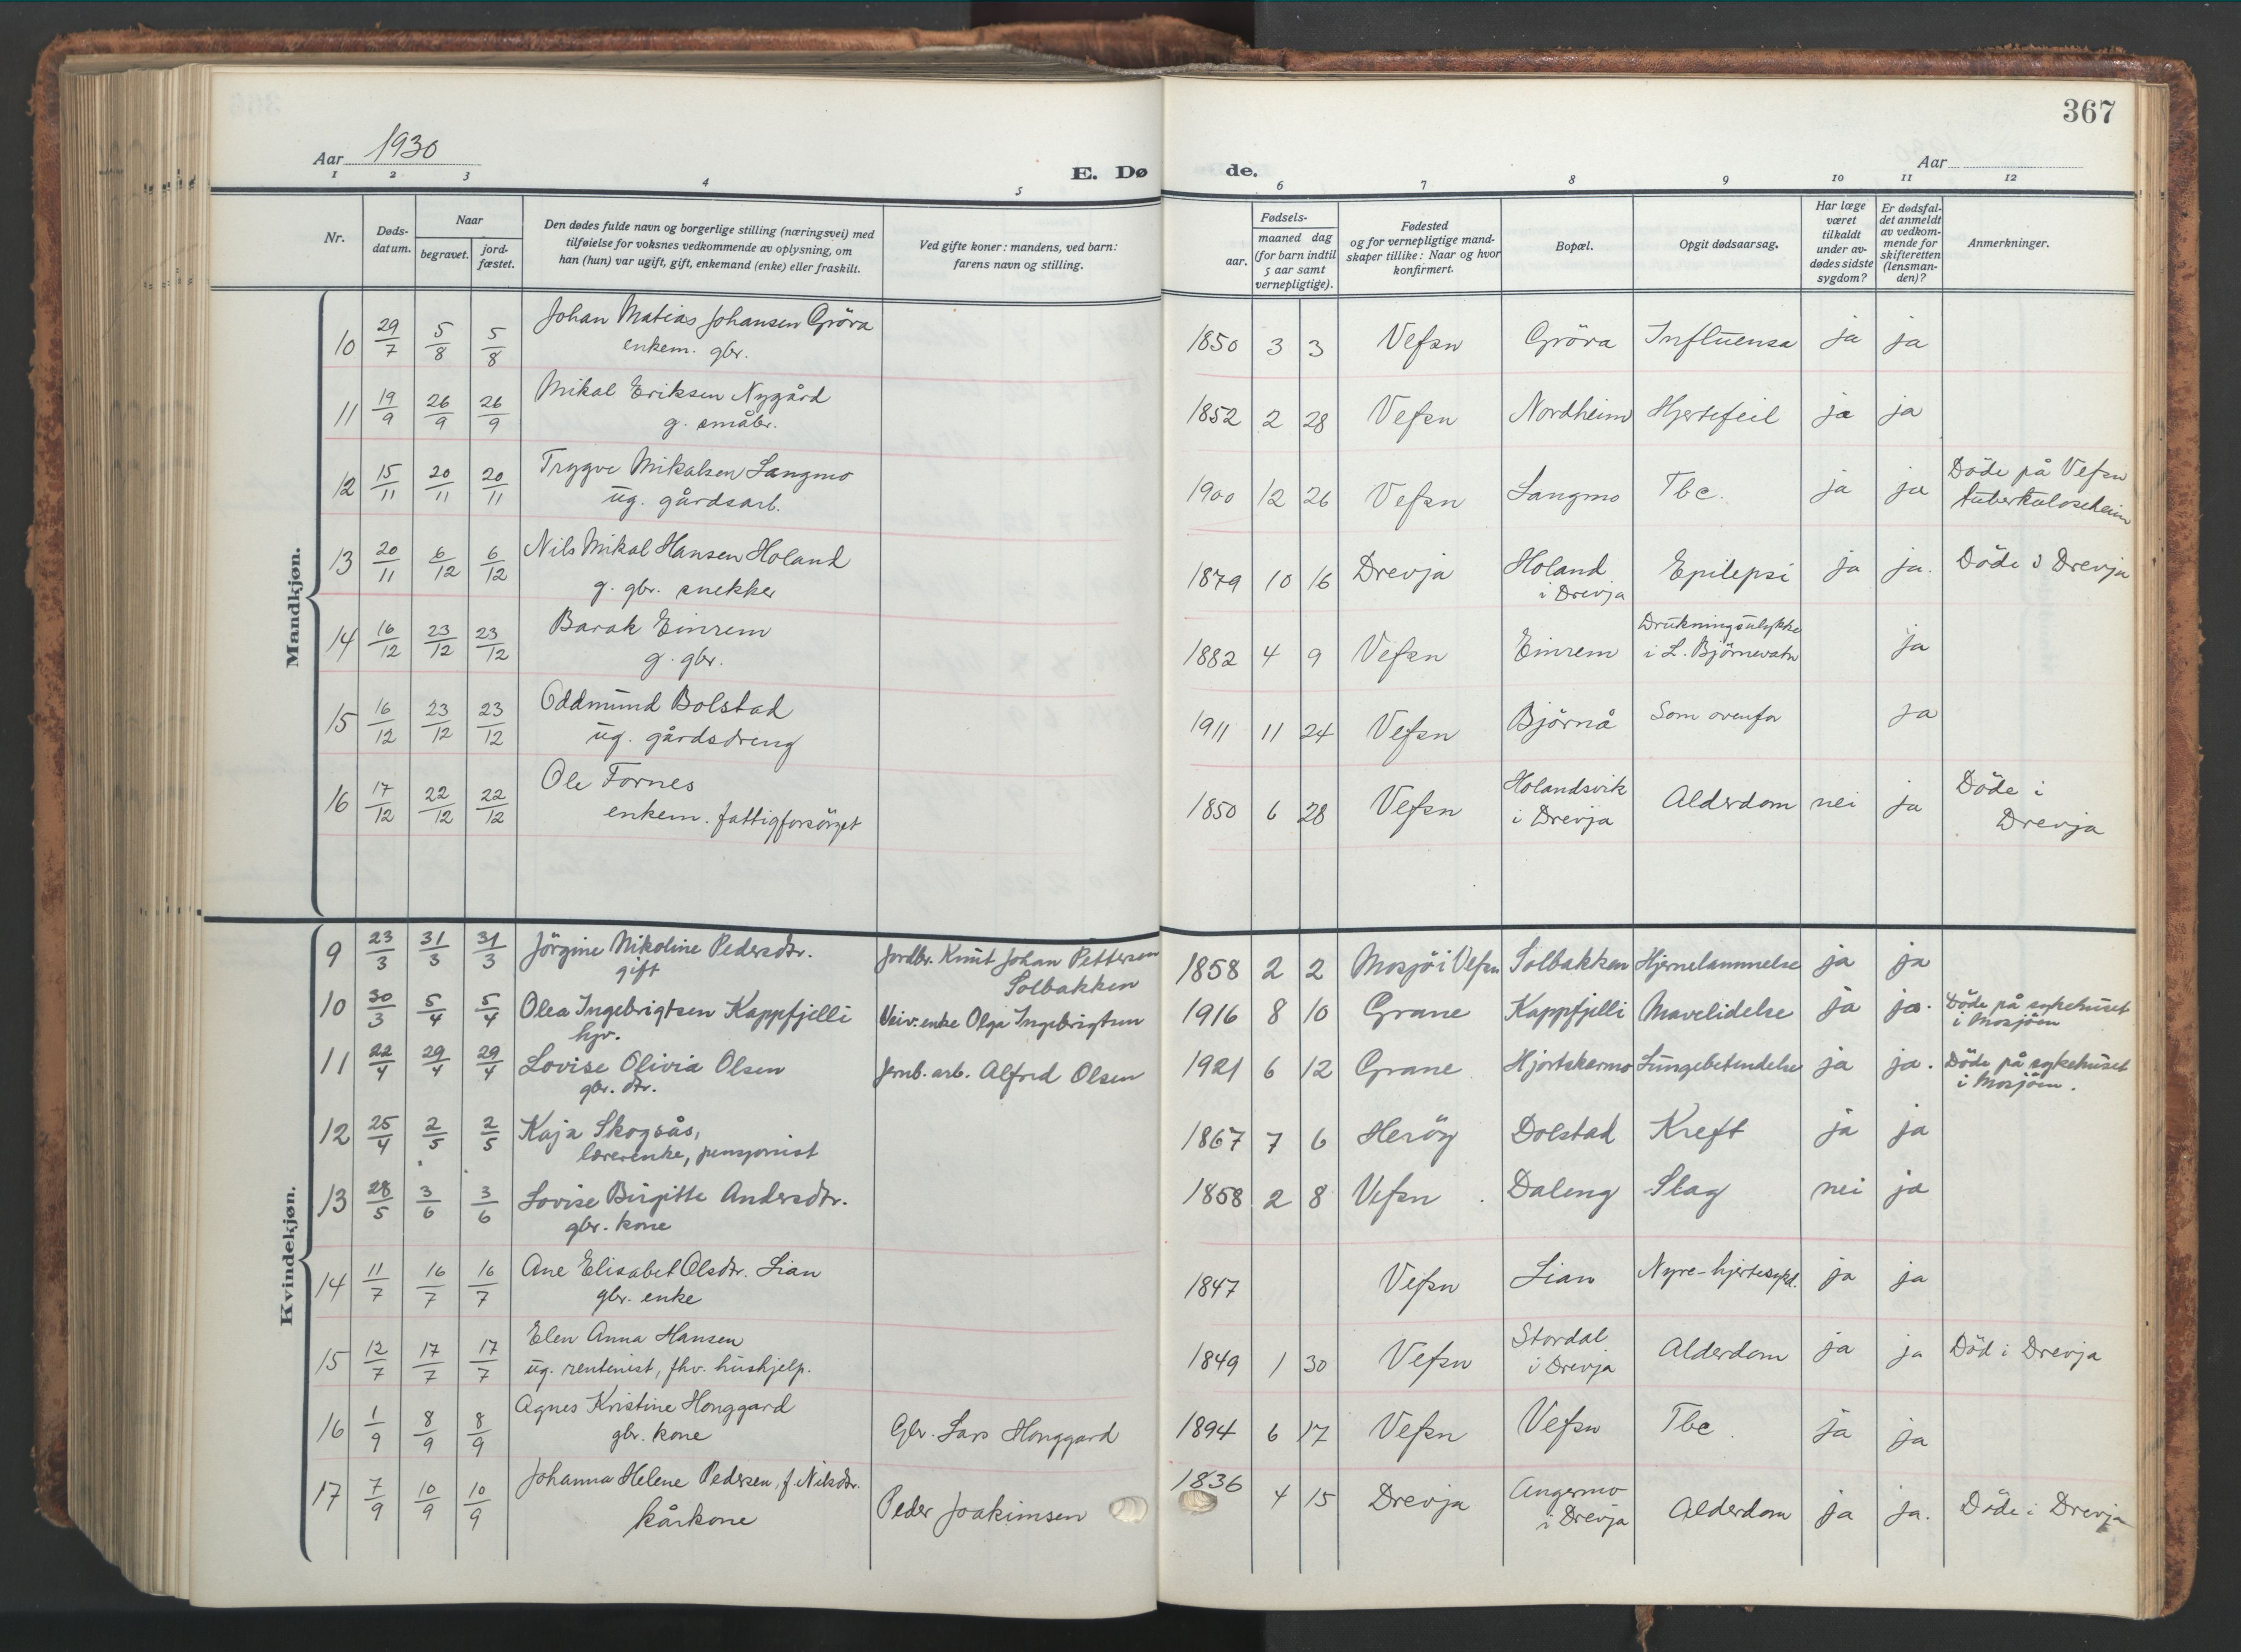 Aar 1930
E. Dø
de.
Aar
367
1 2 3 4 5 6 7 8 9 10 11 12
Nr.
Døds-datum.
Naar
begravet.
jord-fæstet.
Den dødes fulde navn og borgerlige stilling (næringsvei) med
tilføielse for voksnes vedkommende av oplysning, om
han (hun) var ugift, gift, enkemand (enke) eller fraskilt.
Ved gifte koner: mandens, ved barn:
farens navn og stilling.
Fødsels-
aar.
maaned dag
(for barn indtil
5 aar samt
vernepligtige).
Fødested
og for vernepligtige mand-
skaper tillike: Naar og hvor
konfirmert.
Bopæl.
Opgit dødsaarsag.
Har læge
været
tilkaldt
under av-
dødes sidste
sygdom?
Er dødsfal-
det anmeldt
av vedkom-
mende for
skifteretten
(lensman-
den)?
Anmerkninger.
Mandkjøn.
10 29/7 5/8 5/8 Johan Matias Johansen Gröva 1850 3 3 Vefsn Gröva Influensa ja ja
enkem. gbr.
11 19/9 26/9 26/9 Mikal Eriksen Nygård 1852 2 28 Vefsn Nordheim Hjertefeil ja ja
g. småbr.
12 15/11 20/11 20/11 Trygve Mikalsen Langmo 1900 12 26 Vefsn Langmo Tbc. ja ja Döde på Vefsn
ug. gårdsarb. tuberkuloseheim
13 20/11 6/12 6/12 Nils Mikal Hansen Holand 1879 10 16 Drevja Holand Epilepsi ja ja. Döde i Drevja
g. gbr. snekker i Drevja
14 16/12 23/12 23/12 Barak Einrem 1882 4 9 Vefsn Einrem Drukningsulykke ja
g. gbr. i L. Björnevatn
15 16/12 23/12 23/12 Oddmund Bolstad 1911 11 24 Vefsn Björnå Som ovenfor ja
ug. gårdsdreng
16 17/12 22/12 22/12 Ole Fornes 1850 6 28 Vefsn Holandsvik Alderdom nei ja Döde i
enkem. fattigforsörget i Drevja Drevja
Kvindekjøn.
9 23/3 31/3 31/3 Jörgine Nikoline Pedersdtr. Jordbr. Knut Johan Pettersen 1858 2 2 Mosjö i Vefsn Solbakken Hjernelammelse ja ja
gift Solbakken
10 30/3 5/4 5/4 Olea Ingebrigtsen Kappfjelli Veiv. enke Olga Ingebrigtsen 1916 8 10 Grane Kappfjelli Mavelidelse ja ja. Döde på sykehuset
hjv. i Mosjöen
11 22/4 29/4 29/4 Lovise Olivia Olsen Jernb. arb. Alfred Olsen 1921 6 12 Grane Hjortskarmo Lungebetendelse ja ja. Döde på sykehuset
gbr. dtr. i Mosjöen.
12 25/4 2/5 2/5 Kaja Skogsås, 1867 7 6 Heröy Dolstad Kreft ja ja
lærerenke, pensjonist
13 28/5 3/6 3/6 Lovise Birgitte Andersdtr. 1858 2 8 Vefsn Daleng Slag nei ja
gbr. kone
14 11/7 16/7 16/7 Ane Elisabet Olsdtr. Lian 1847 Vefsn Lian Nyre-hjertesykd. ja ja
gbr. enke
15 12/7 17/7 17/7 Elen Anna Hansen 1849 1 30 Vefsn Stordal Alderdom ja ja Död i Drevja
ug. rentenist, fhv. hushjelp. i Drevja
16 1/9 8/9 8/9 Agnes Kristine Honggard Gbr. Lars Honggard 1894 6 17 Vefsn Vefsn Tbc. ja ja
gbr. kone
17 7/9 10/9 10/9 Johanna Helene Pedersen, f. Nilsdtr. Peder Joakimsen 1836 4 15 Drevja Angermo Alderdom ja ja. Döde i Drevja
kårkone i Drevja